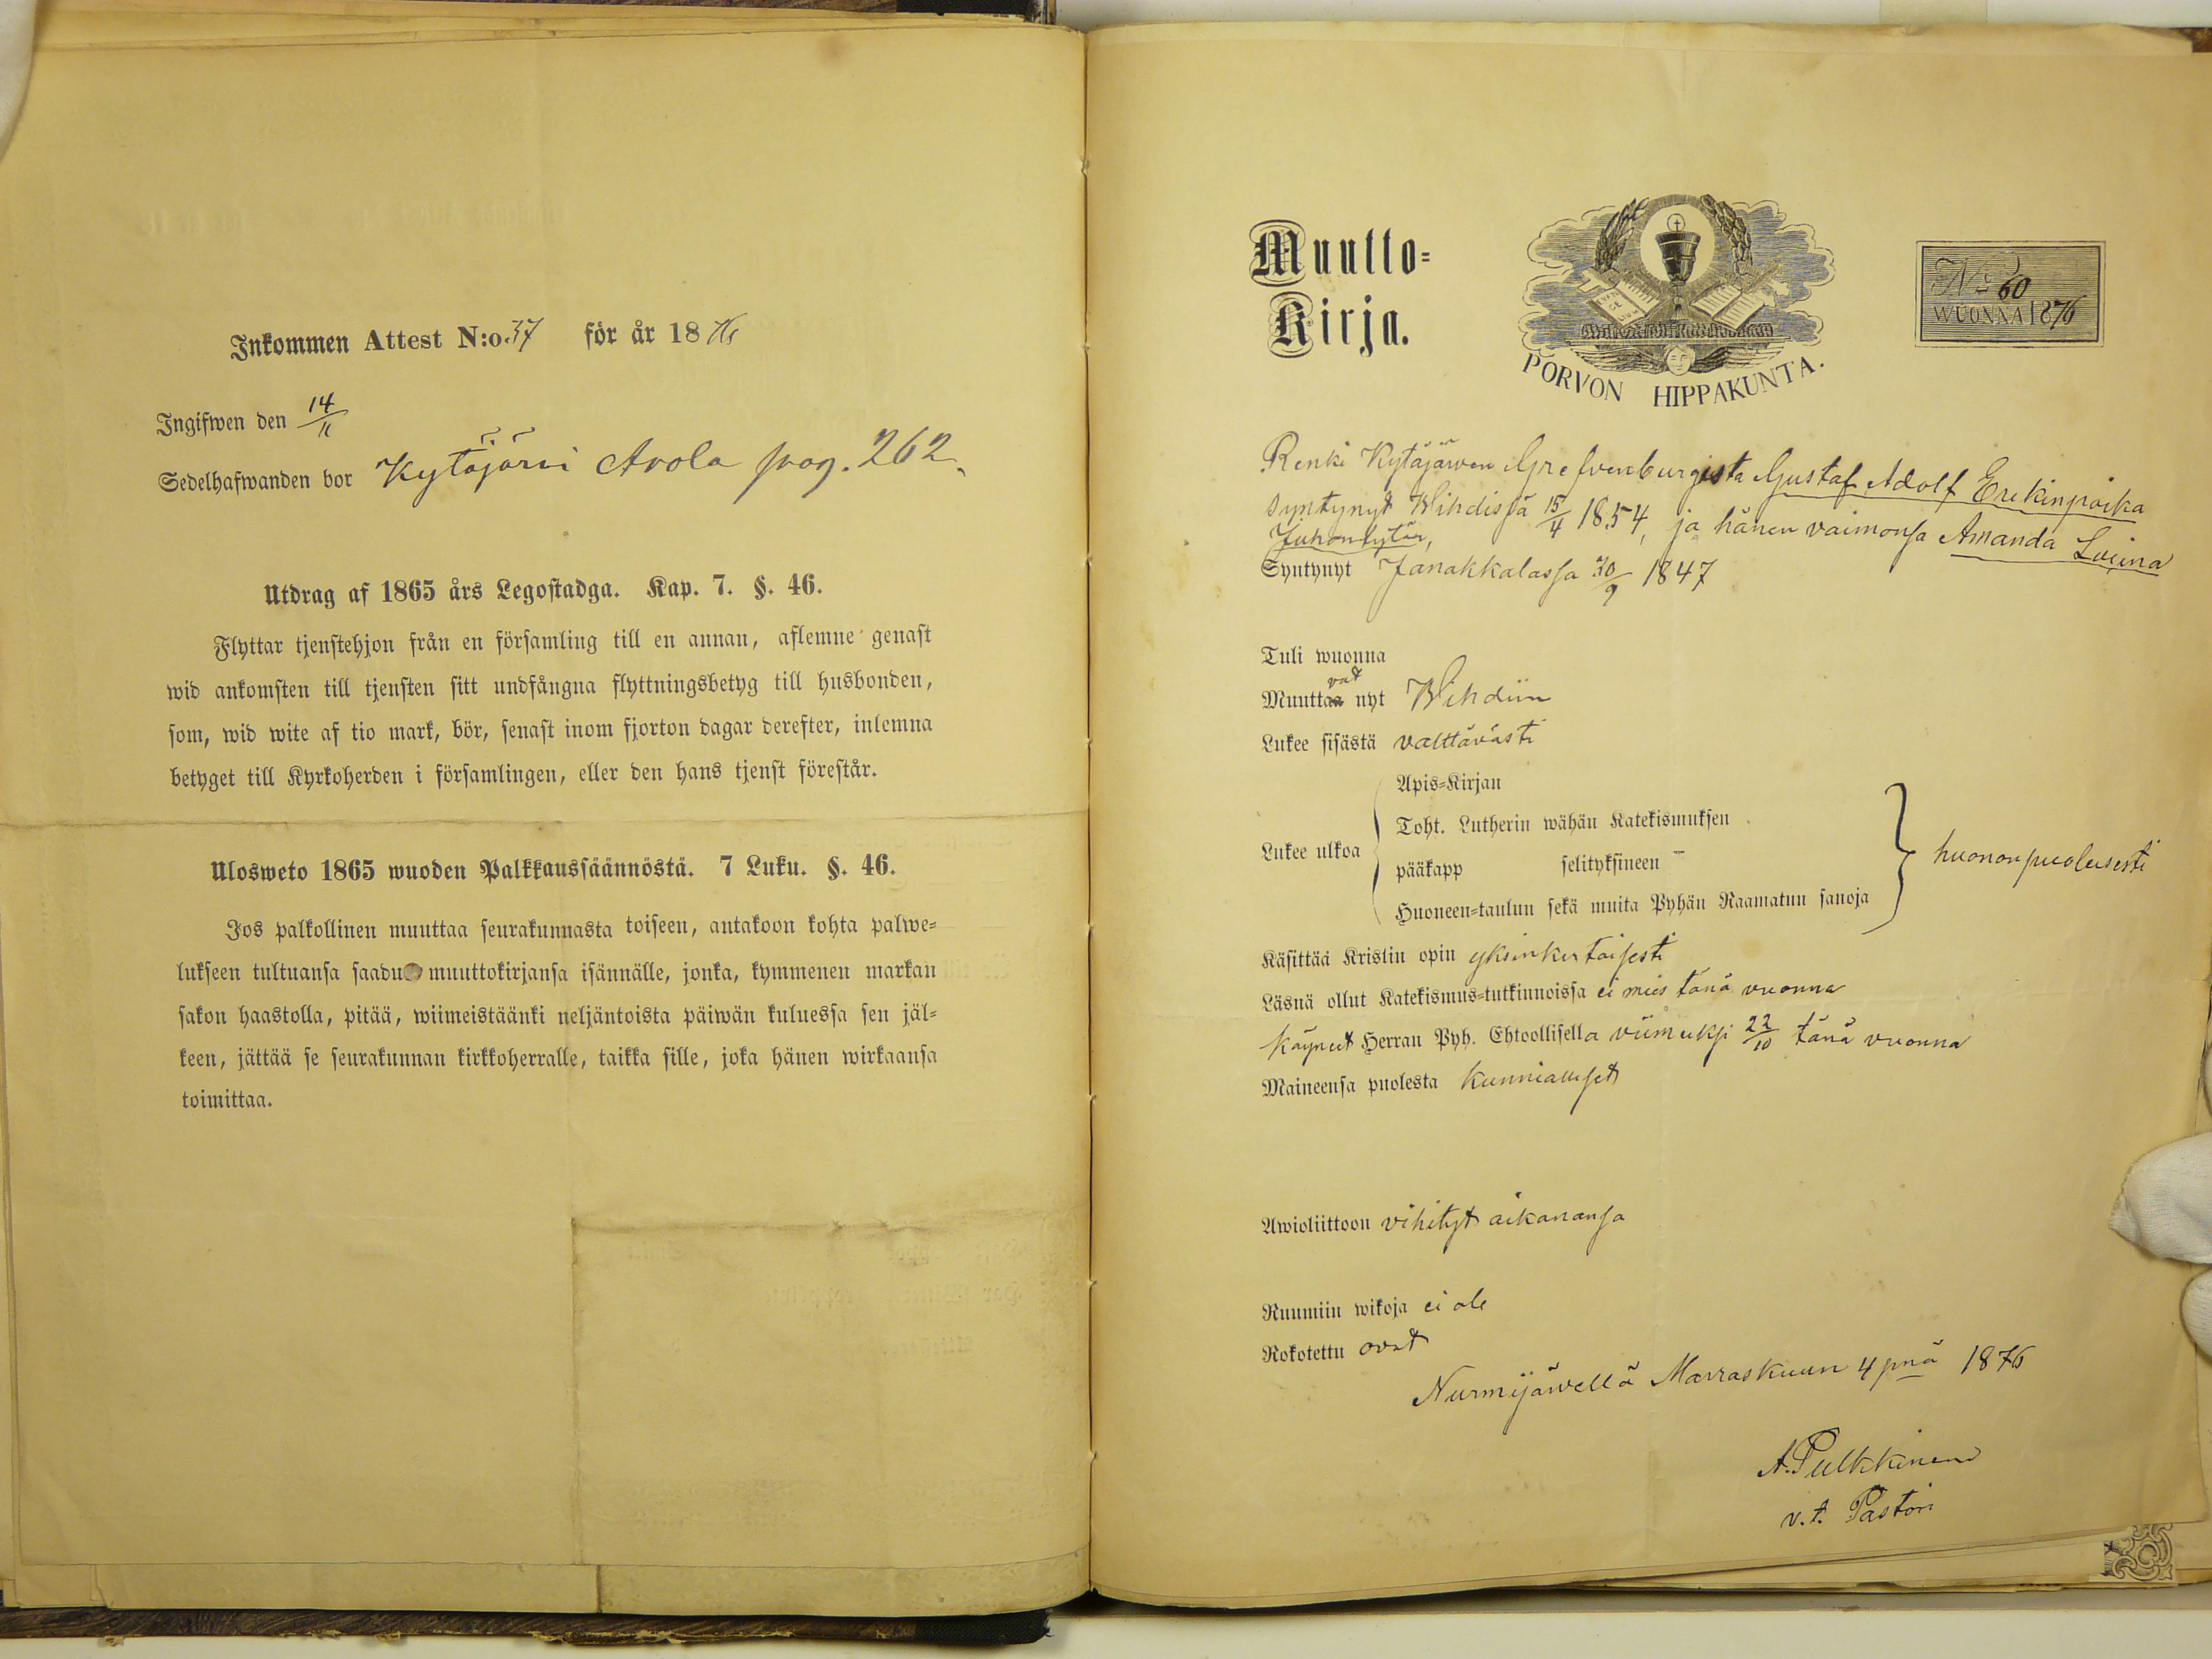 Inkommen Attest N:o. 37 för år 1876
Ingifwen den 14/11
Sedelhafwanden bor Kytäjärvi Arola pag. 262.
Utdrag af 1865 års Legostadga. Kap. 7. §. 46.
Flyttar tjenstehjon från en församling till en annan, aflemne genast
wid ankomsten till tjensten sitt undfångna flyttningsbetyg till husbonden,
som, wid wite af tio mark, bör, senast inom fjorton dagar derefter, inlemna
betyget till Kyrkoherden i församlingen, eller den hans tjenst förestår.
Ulosweto 1865 wuoden Palkkaussäännöstä. 7 Luku. §. 46.
Jos palkollinen muuttaa seurakunnasta toiseen, antakoon kohta palwe=
lukseen tultuansa saadun muuttokirjansa isännälle, jonka, kymmenen markan
sakon haastolla, pitää, wiimeistäänki neljäntoista päiwän kuluessa sen jäl=
keen, jättää se seurakunnan kirkkoherralle, taikka sille, joka hänen wirkaansa
toimittaa.
Muutto=
Kirja.
PORVON HIPPAKUNTA.
No 60
WUONNA 1876
Renki Kytäjärwen Grefvenburgista Gustaf Adolf Erikinpoika
syntynyt Wihdissä 15/4 1854, ja hänen vaimonsa Amanda Lovina
Juhontytär,
Syntynyt Janakkalassa 30/9 1847
Tuli wuonna
vat
Muuttaa nyt Wihdiin
Lukee sisästä välttävästi
Apis=Kirjan
Toht. Lutherin wähän Katekismuksen
Lukee ulkoa
pääkapp selityksineen
huononpuoleisesti
Huoneen=taulun sekä muita Pyhän Raamatun sanoja
Käsittää Kristin opin yksinkertaisesti
Läsnä ollut Katekismus=tutkinnoissa ei mies tänä vuonna
Käyneet Herran Pyh. Ehtoollisella viimeksi 22/10 tänä vuonna
Maineensa puolesta kunnialliset
Awioliittoon vihityt aikanansa
Ruumiin wikoja ei ole
Rokotettu ovat
Nurmijärwellä Marraskuun 4 pnä 1876
A. Pulkkinen
v. t. Pastori